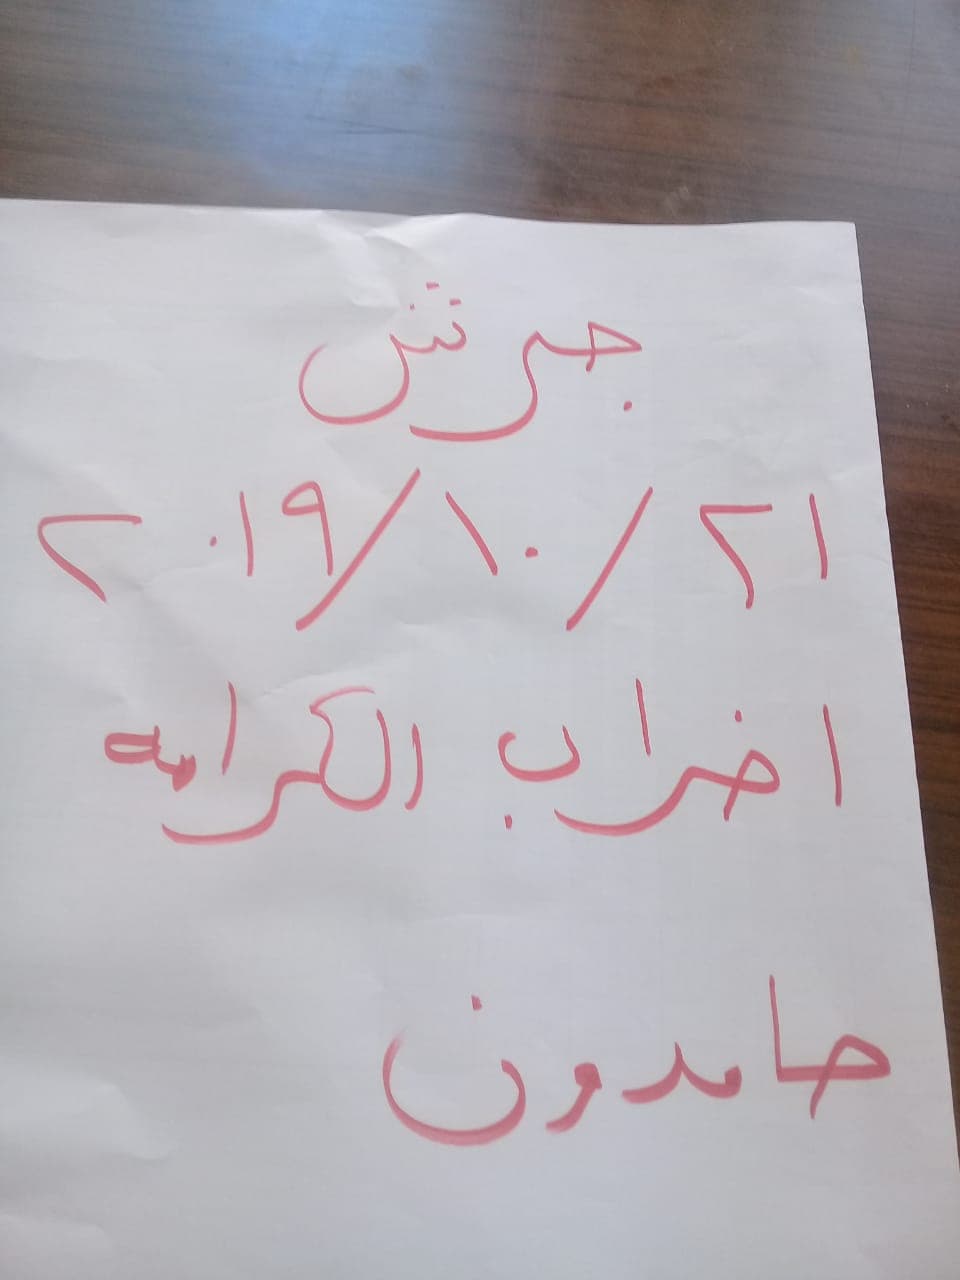 جرش
٢١/١٠/٢٠١٩
اضراب الكرامه
صامدون